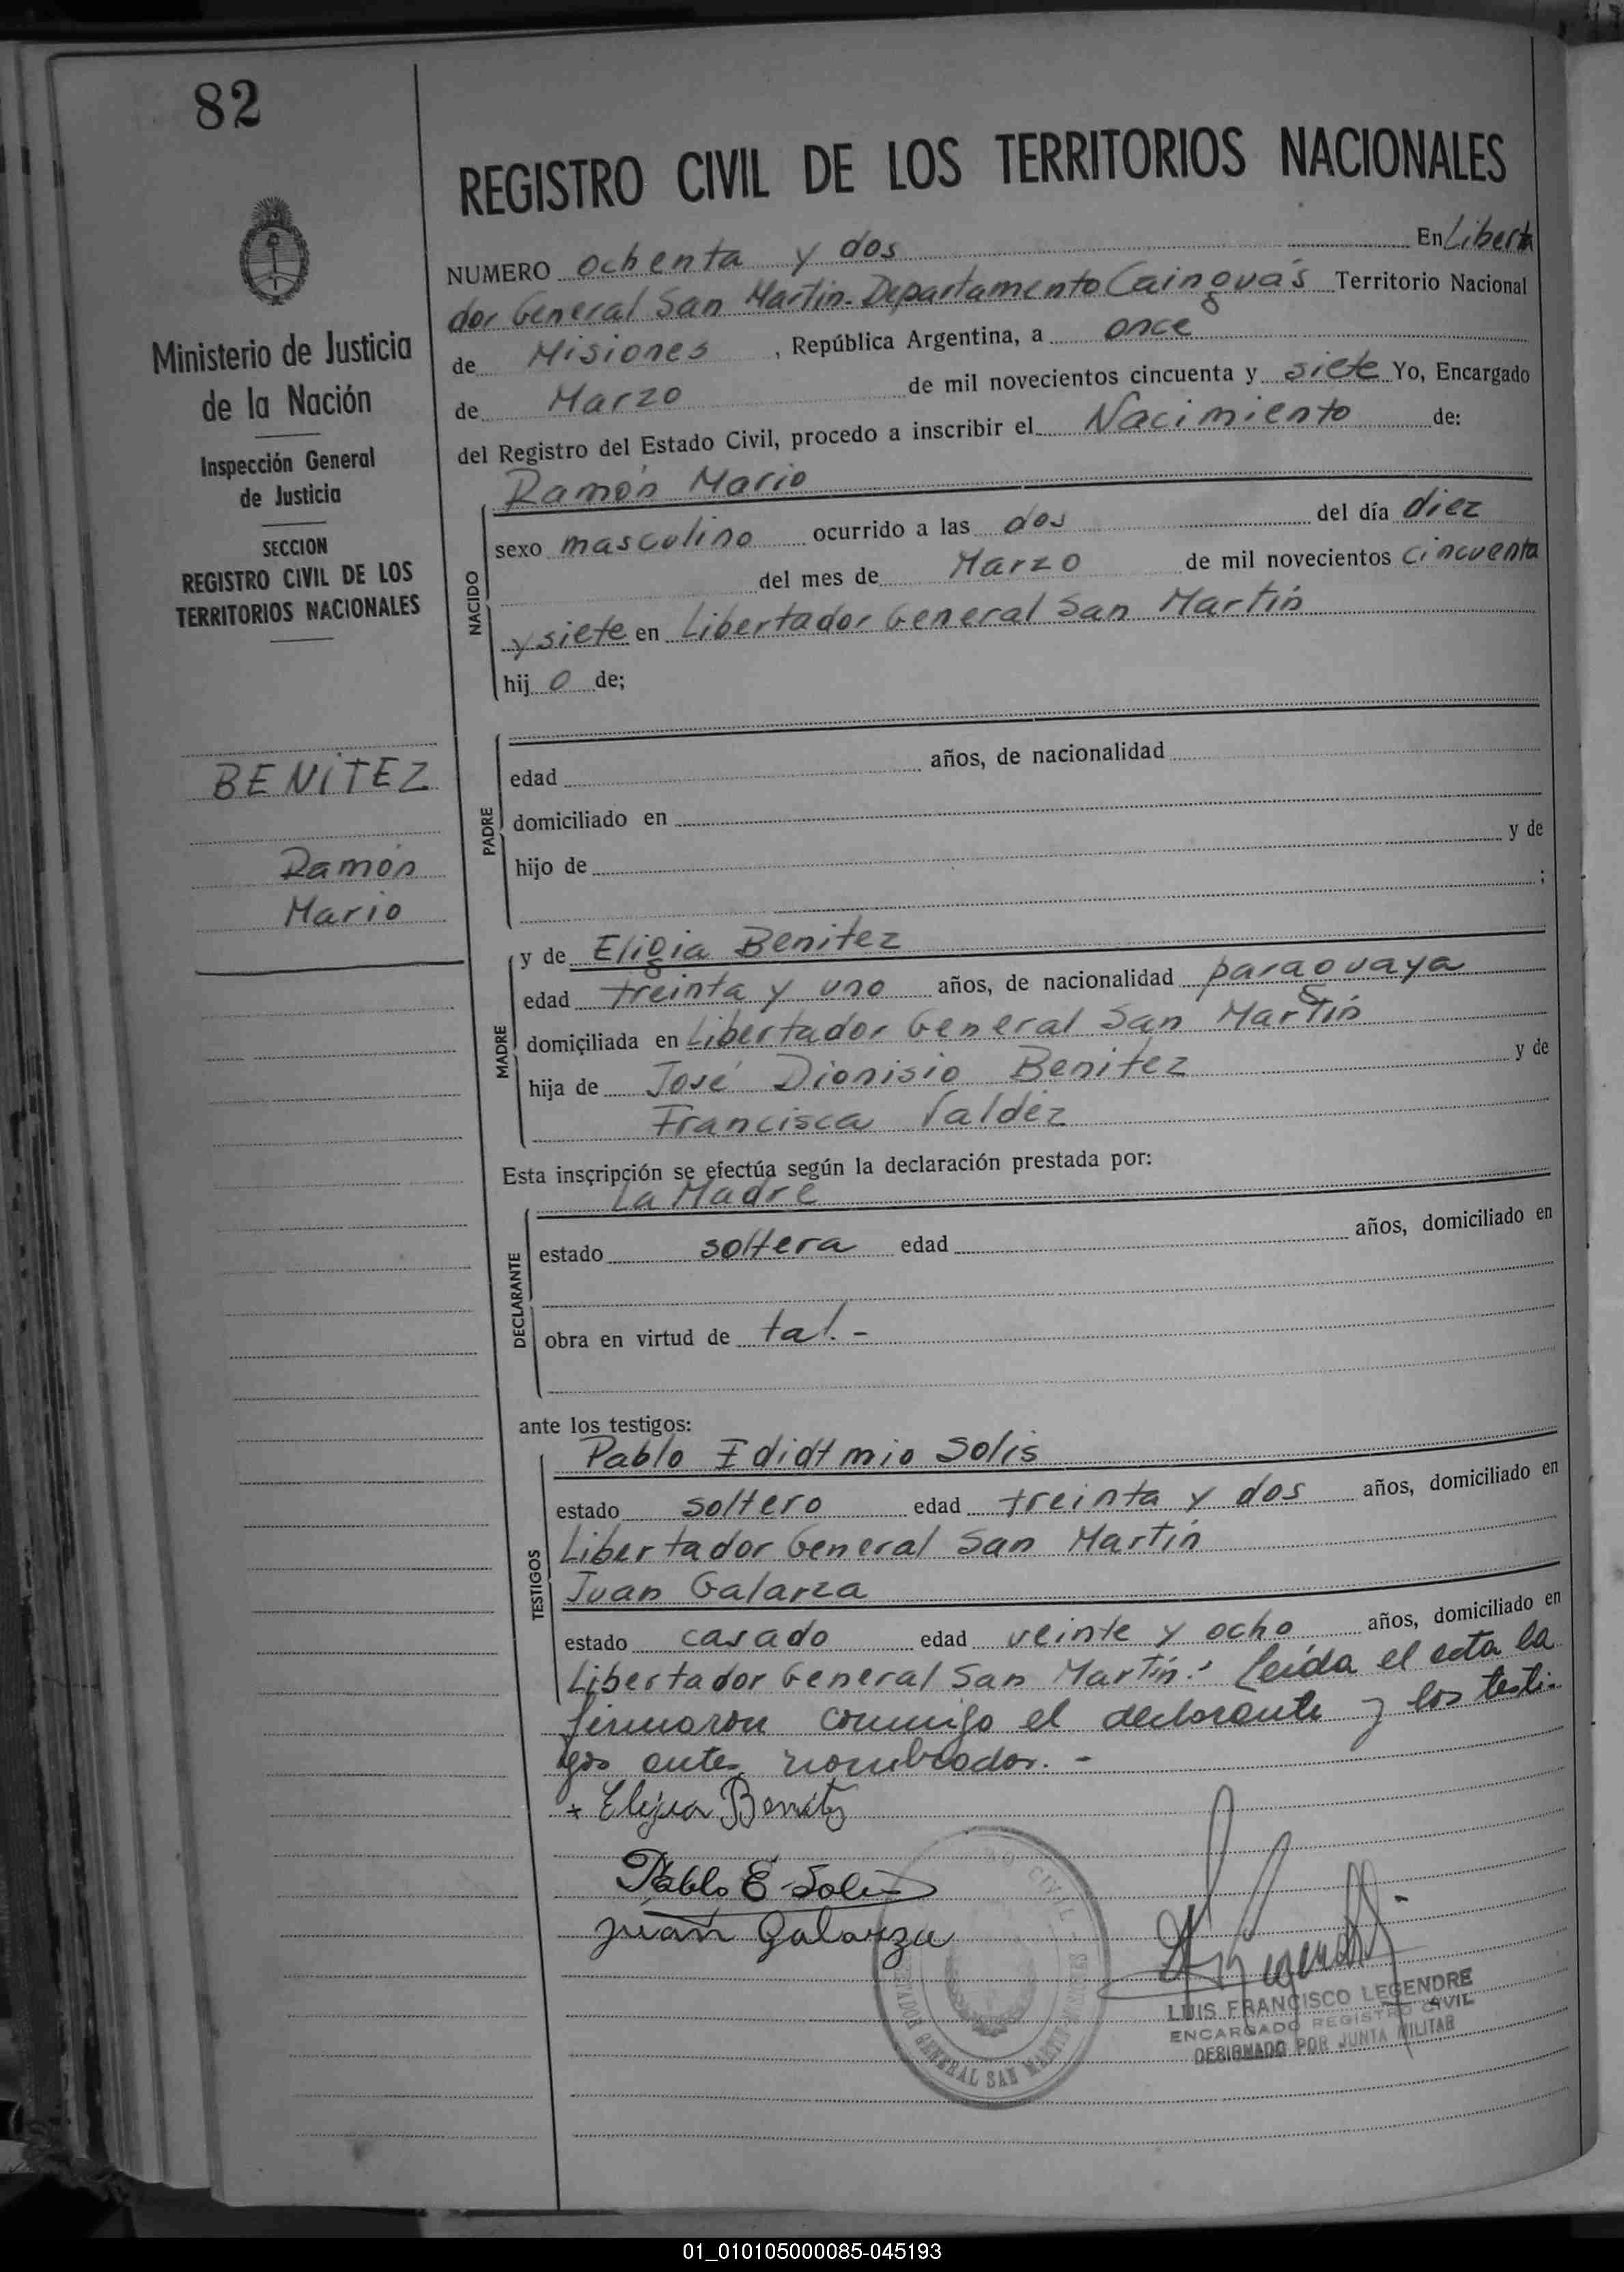 82
Ministerio de Justicia
de la Nación
Inspección General
de Justicia
SECCION
REGISTRO CIVIL DE LOS
TERRITORIOS NACIONALES
BENITEZ
Ramón
Mario
REGISTRO CIVIL DE LOS TERRITORIOS NACIONALES
NUMERO ochenta y dos En Liberta
dor General San Martin- Departamento Cainguás Territorio Nacional
de Misiones , República Argentina, a once
de Marzo de mil novecientos cincuenta y siete Yo, Encargado
del Registro del Estado Civil, procedo a inscribir el Nacimiento de:
Ramón Mario
NACIDO
sexo masculino ocurrido a las dos del día diez
del mes de Marzo de mil novecientos cincuenta
y siete en Libertador General San Martín
hij o de;
PADRE
edad años, de nacionalidad
domiciliado en
hijo de y de
;
MADRE
y de Eligia Benitez
edad treinta y uno años, de nacionalidad paraguaya
domiciliada en Libertador General San Martín
hija de José Dionisio Benitez y de
Francisca Valdéz
Esta inscripción se efectúa según la declaración prestada por:
La Madre
DECLARANTE
estado soltera edad años, domiciliado en
obra en virtud de tal.-
ante los testigos:
Pablo Solis
TESTIGOS
estado soltero edad treinta y dos años, domiciliado en
Libertador General San Martín
Juan Galarza
estado casado edad veinte y ocho años, domiciliado en
Libertador General San Martín.- Leída el acta la
firmaron conmigo el declarante y los testi-
gos antes nombrados.-
+ Eligia Benitez
Pablo E Solis
Juan Galarza
CIVIL
GENERAL SAN MARTIN
LUIS FRANCISCO LEGENDRE
ENCARGADO REGISTRO CIVIL
DESIGNADO POR JUNTA MILITAR
01_010105000085-045193